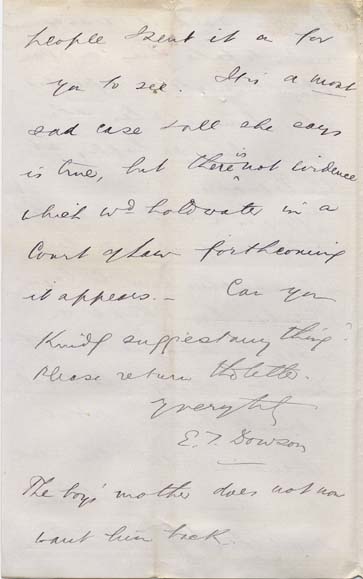 people I sent it on for
you to see. It is a most
sad case & all she says
is true, but there is not evidence
which wd hold water in a
Court of Law forthcoming
it appears. – Can you
Kindly suggest any thing?
Please return the letter.
Yrs very
E. T. Dowson
The boy's mother does not now
want him back.